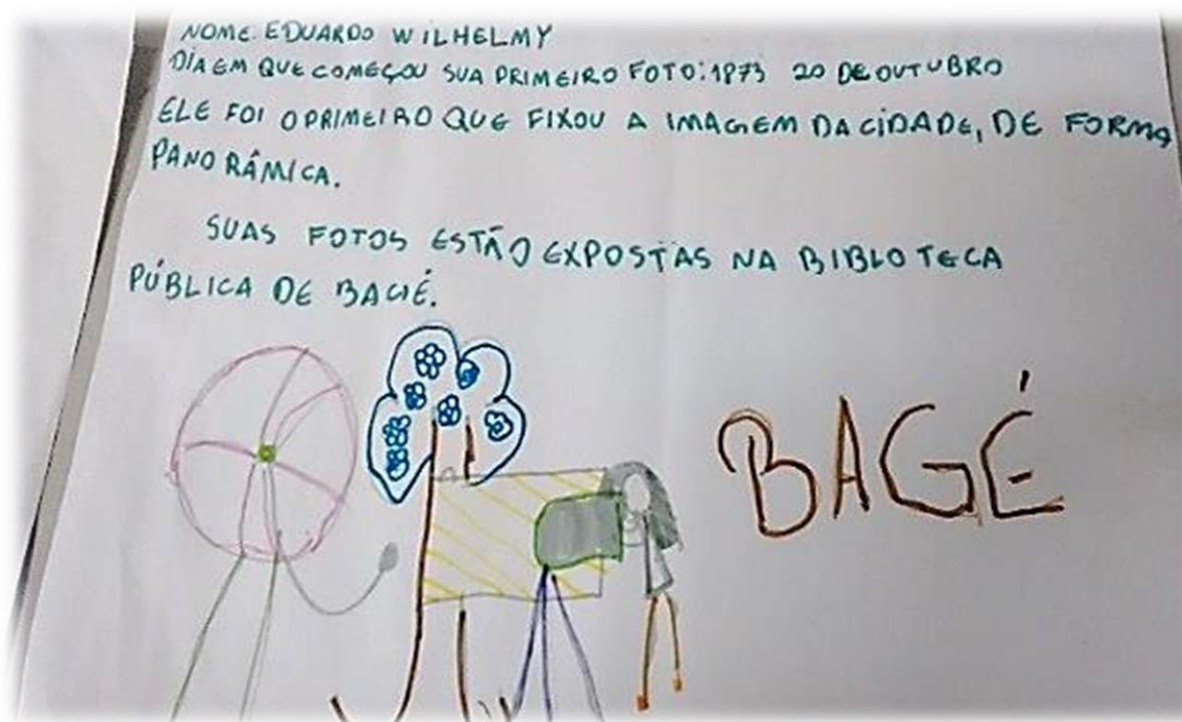 NOME: EDUARDO WILHELMY
DIA EM QUE COMEÇOU SUA PRIMEIRO FOTO: 1873 20 DE OUTUBRO
ELE FOI O PRIMEIRO QUE FIXOU A IMAGEM DA CIDADE, DE FORMA
PANORÂMICA.
SUAS FOTOS ESTÃO EXPOSTAS NA BIBLOTECA
PÚBLICA DE BAGÉ.
BAGÉ